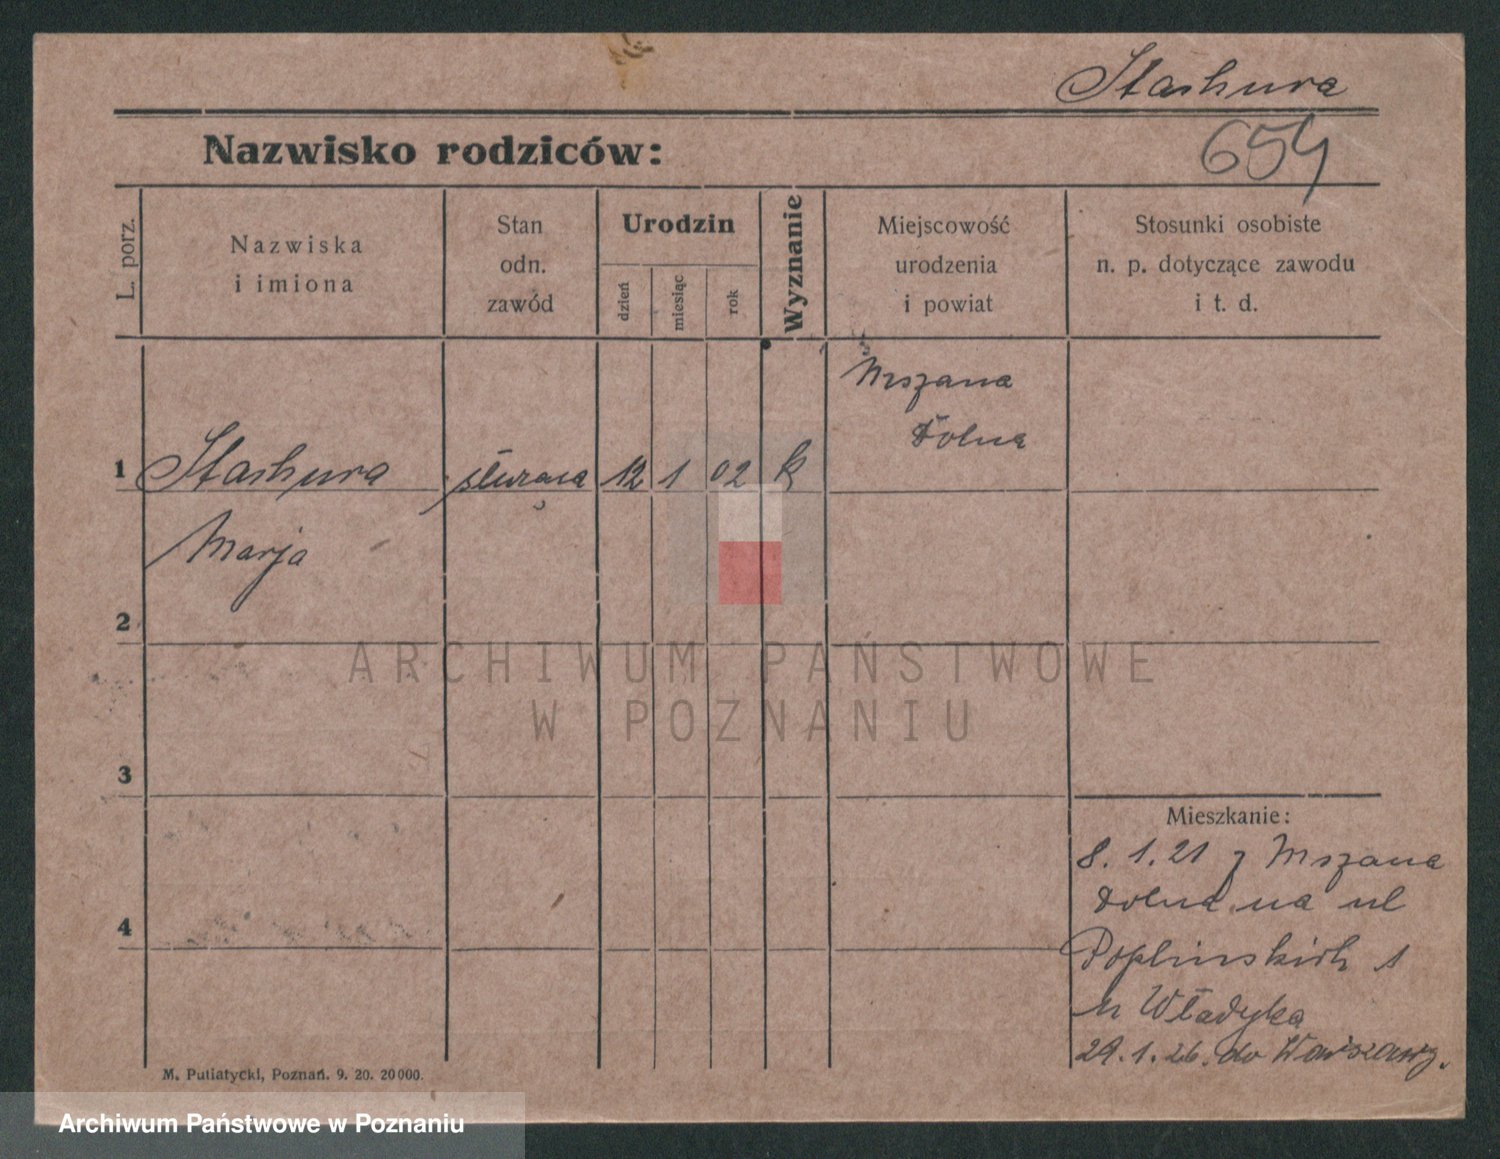 Stachura
654
Nazwisko rodziców:
L. porz.
Nazwiska
i imiona
Stan
odn.
zawód
Urodzin
dzień
miesiąc
rok
Wyznanie
Miejscowość
urodzenia
i powiat
Stosunki osobiste
n. p. dotyczące zawodu
i t. d.
Mszana
Dolna
1 Stachura służąca 12 1 02 k
Marja
2
ARCHIWUM PAŃSTWOWE
W POZNANIU
3
Mieszkanie:
8. 1. 21 z Mszana
Dolna na ul
4
Poplinskich 1
u Władyka
29. 1. 26. do Warszawy.
M. Putiatycki, Poznań. 9. 20. 20000.
Archiwum Państwowe w Poznaniu